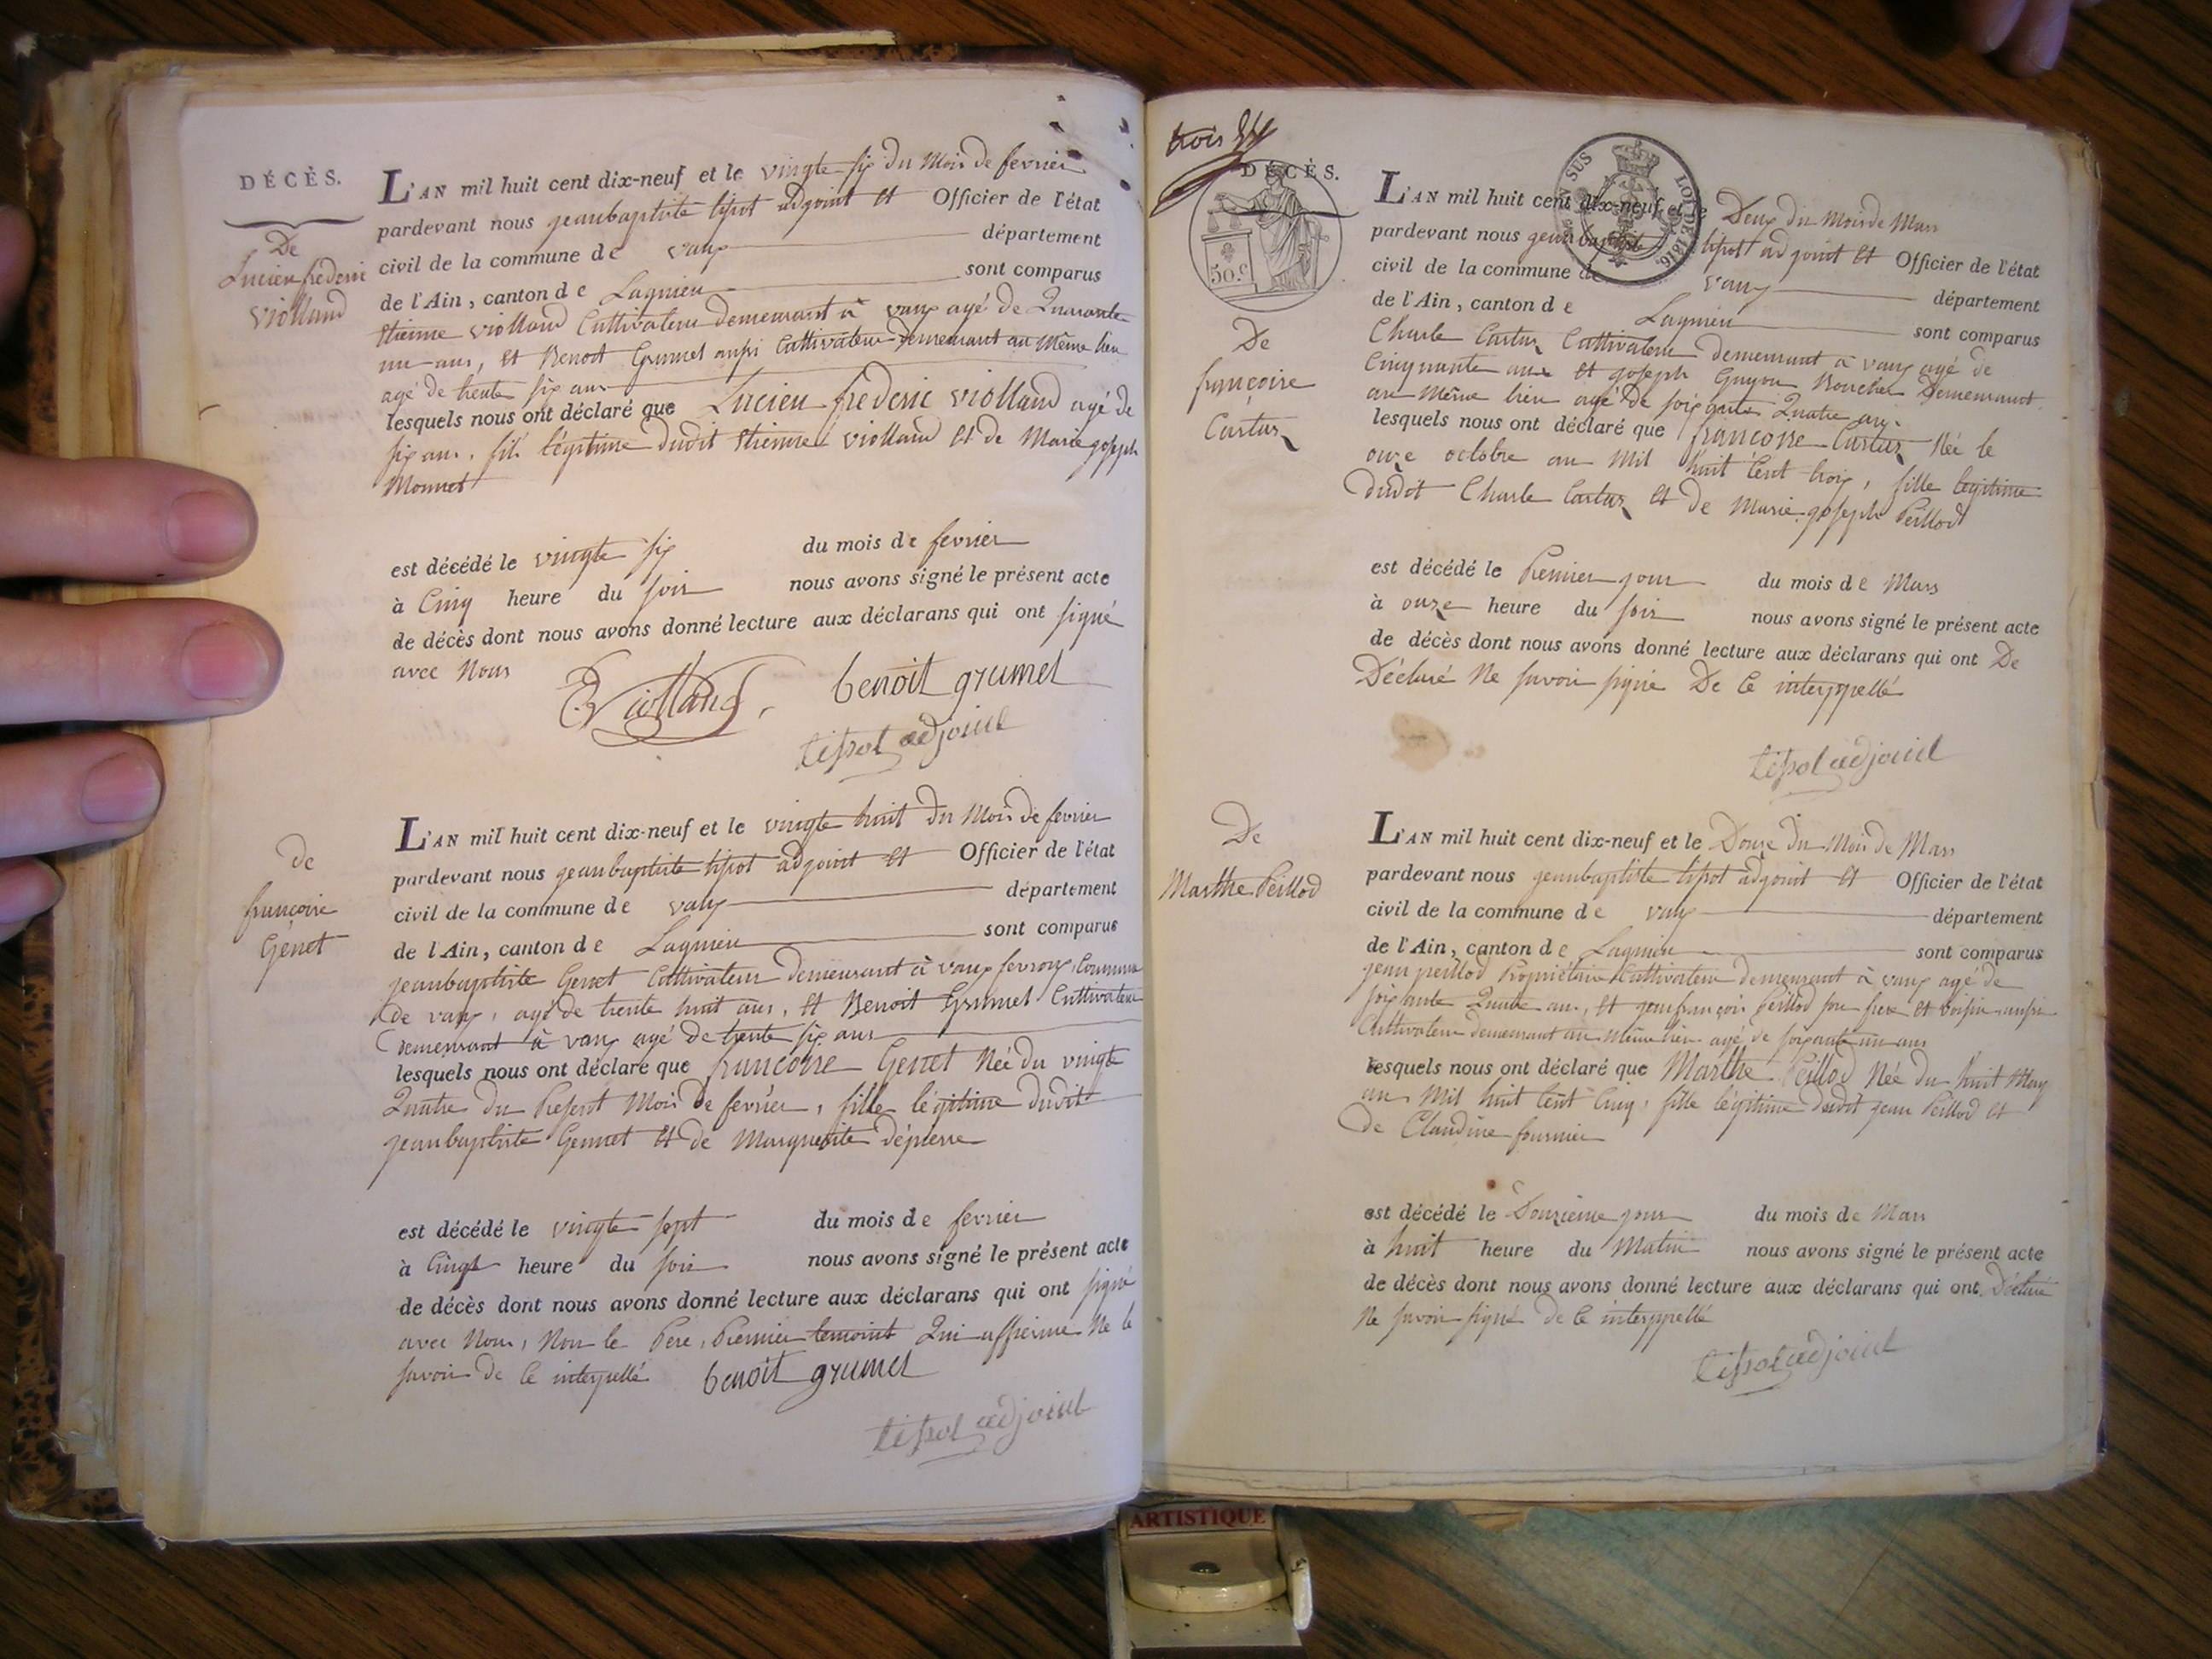 DÉCÈS.
De
Lucien frederic
Violland
L'AN mil huit cent dix-neuf et le vingte six du Mois de fevrier
pardevant nous jeanbaptiste tipot adjoint et Officier de l'état
civil de la commune de vaux département
de l'Ain, canton de Lagnieu sont comparus
Etienne violland Cultivateur demeurant à vaux agé de Quarante
un ans, et Benoit Grumet aussi Cultivateur demeurant au Même lieu
agé de trente six ans
lesquels nous ont déclaré que Lucien frederic violland agé de
six ans, fils légitime dudit Etienne violland et de Marie joseph
Monnet
est décédé le vingte six du mois de fevrier
à Cinq heure du soir nous avons signé le présent acte
de décès dont nous avons donné lecture aux déclarans qui ont signé
avec Nous
Violland benoit grumet
tipot adjoint
de
françoise
Génet
L'AN mil huit cent dix-neuf et le vingte huit du Mois de fevrier
pardevant nous jeanbaptiste tipot adjoint et Officier de l'état
civil de la commune de vaux département
de l'Ain, canton de Lagnieu sont comparus
jeanbaptiste Genet Cultivateur demeurant à vaux fevroux, Commune
de vaux, agé de trente huit ans, et Benoit Grumet Cultivateur
demeurant à vaux agé de trente six ans
lesquels nous ont déclaré que françoise Genet Née du vingte
Quatre du Present Mois de fevrier, fille légitime dudit
jeanbaptiste Gennet et de Marguerite dépierre
est décédé le vingte sept du mois de fevrier
à Cinqt heure du soir nous avons signé le présent acte
de décès dont nous avons donné lecture aux déclarans qui ont signé
avec Nous, Non le Pere, Premier temoint Qui affirme Ne le
savoir de Ce interpellé benoit grumet
tipot adjoint
trois
DÉCÈS.
50.c
LOI DE 1816.
De
françoise
Cartaz
L'AN mil huit cent dix-neuf et le Deux du Mois de Mars
pardevant nous jeanbaptiste tipot adjoint et Officier de l'état
civil de la commune de vaux département
de l'Ain, canton de Lagnieu sont comparus
Charle Cartaz Cultivateur demeurant à vaux agé de
Cinquante ans et joseph Guyon Boucher Demeurant
au Même lieu agé de soixante Quatre ans.
lesquels nous ont déclaré que françoise Cartaz Née le
onze octobre an Mil huit Cent trois, fille légitime
dudit Charle Cartaz et de Marie joseph Peillod
est décédé le Premier jour du mois de Mars
à onze heure du soir nous avons signé le présent acte
de décès dont nous avons donné lecture aux déclarans qui ont De
Déclaré Ne savoir signé De Ce interppellé
tipot adjoint
De
Marthe Peillod
L'AN mil huit cent dix-neuf et le Douze du Mois de Mars
pardevant nous jeanbaptiste tipot adjoint et Officier de l'état
civil de la commune de vaux département
de l'Ain, canton de Lagnieu sont comparus
jean peillod Propriétaire Cultivateur demeurant à vaux agé de
soixante Quatre ans, et jeanfrançois Peillod son frere et voisin aussi
Cultivateur demeurant au même lieu agé de soixante un ans
lesquels nous ont déclaré que Marthe Peillod Née du huit May
an Mil huit Cent Cinq, fille légitime dudit jean Peillod et
de Claudine fournier
est décédé le Douzieme jour du mois de Mars
à huit heure du Matin nous avons signé le présent acte
de décès dont nous avons donné lecture aux déclarans qui ont Déclaré
Ne savoir signé de Ce interppellé
tipot adjoint
ARTISTIQUE